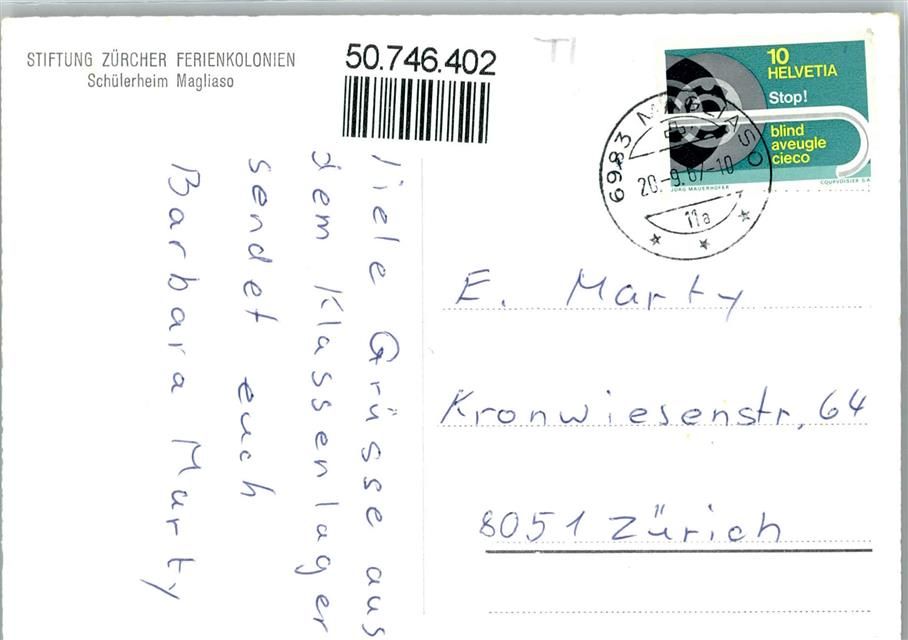 STIFTUNG ZÜRCHER FERIENKOLONIEN
Schülerheim Magliaso
50.746.402
TI
10
HELVETIA
Stop!
blind
aveugle
cieco
JÜRG MAUERHOFER
COURVOISIER S.A.
6983 MAGLIASO
20.-9.67-10
11a
Viele Grüsse aus
dem Klassenlager
sendet euch
Barbara Marty
E. Marty
Kronwiesenstr. 64
8051 Zürich